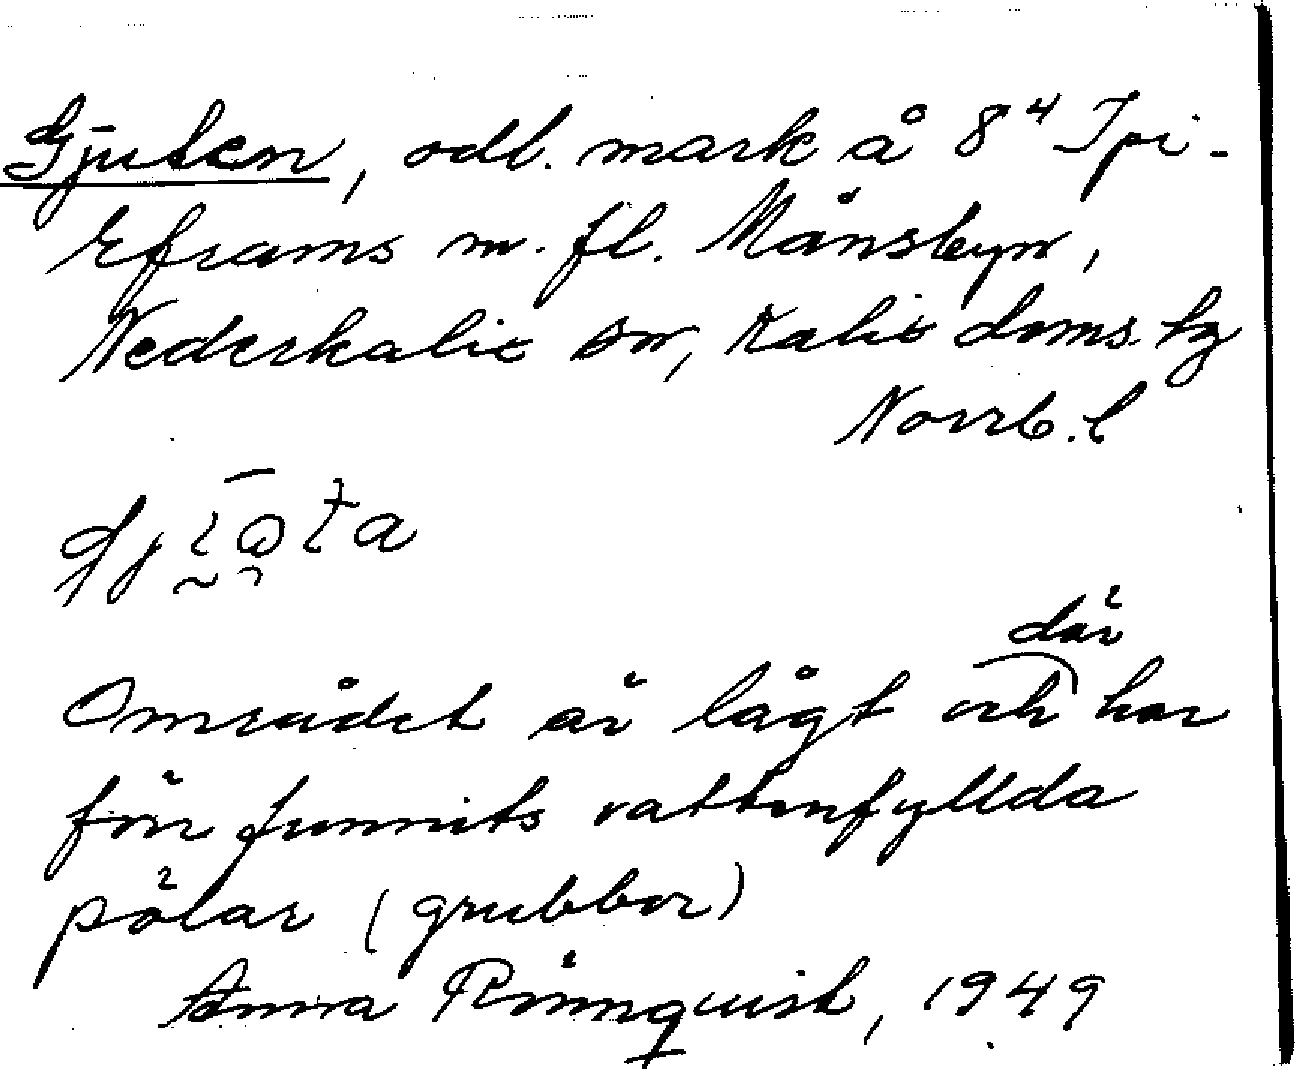 Gjuten, odl. mark å 8⁴ Ipi-
Eframs m. fl. Månsbyn,
Nederkalix sn, Kalix doms. hg
Norrb. l
Området är lågt och där har
förr funnits vattenfyllda
pölar (grubbor)
Anna Rönnquist, 1949